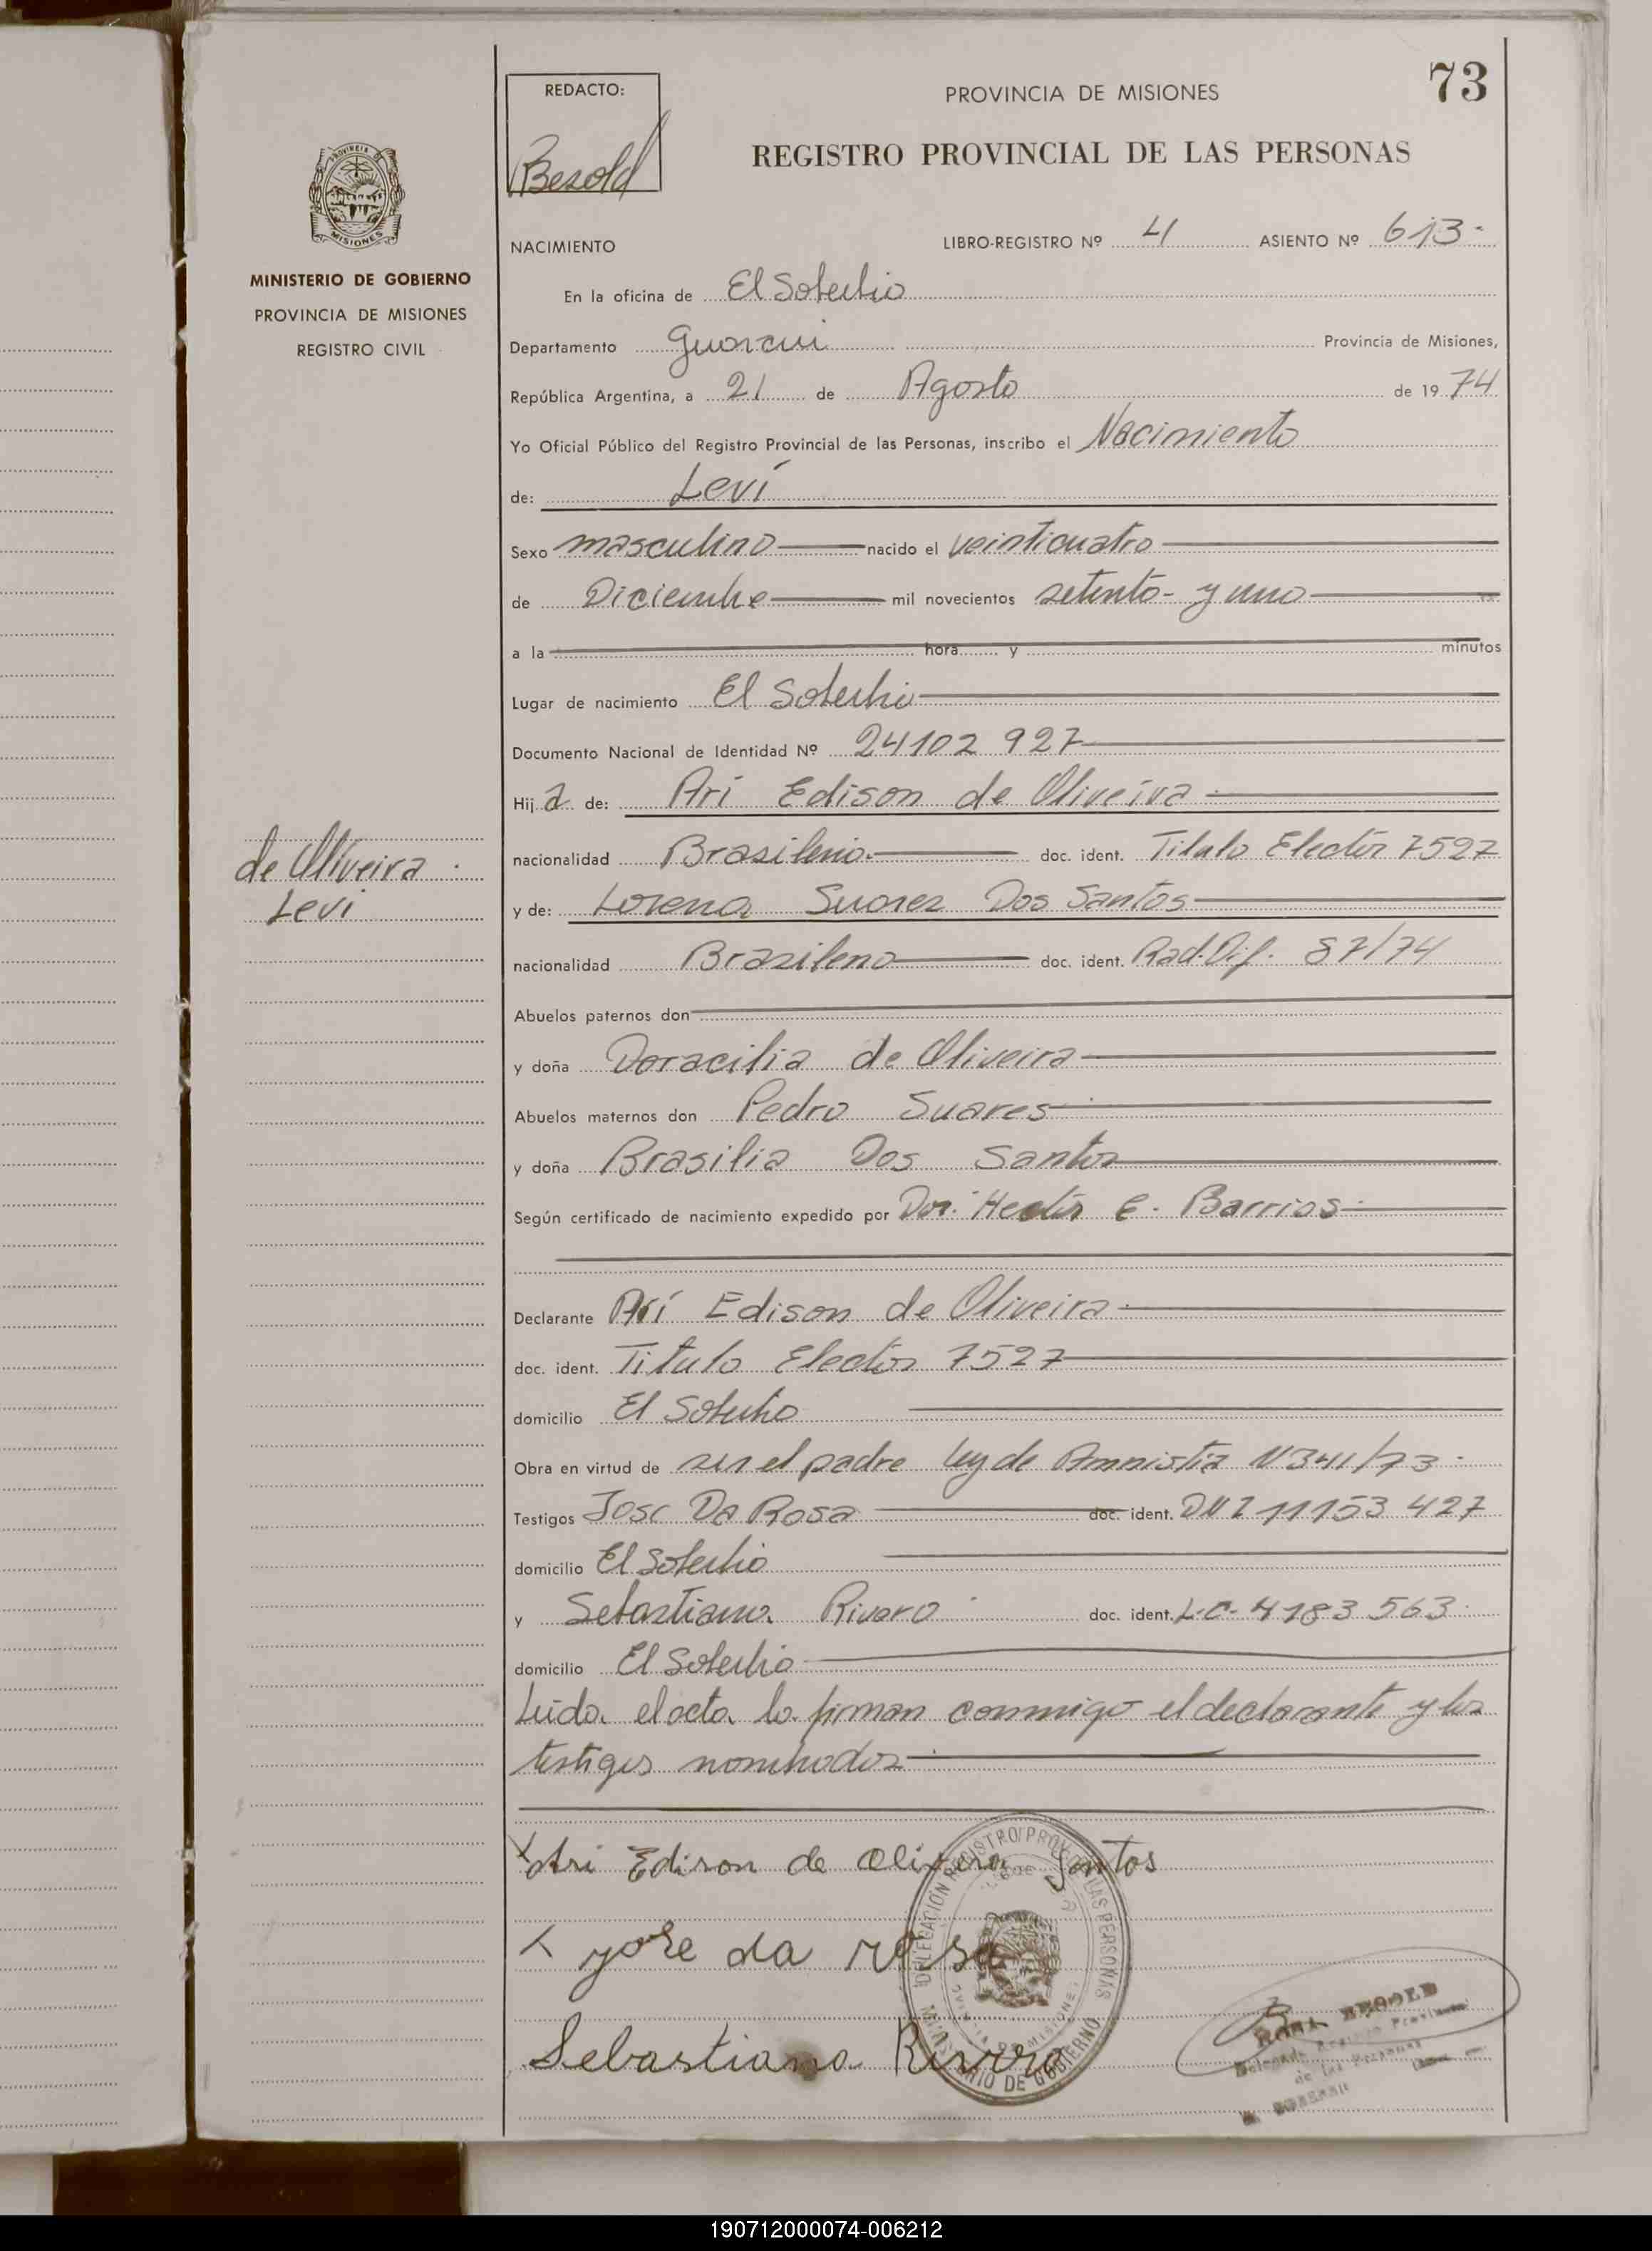 73
REDACTO:
Besold
PROVINCIA DE MISIONES
REGISTRO PROVINCIAL DE LAS PERSONAS
PROVINCIA DE
MISIONES
MINISTERIO DE GOBIERNO
PROVINCIA DE MISIONES
REGISTRO CIVIL
NACIMIENTO
LIBRO-REGISTRO Nº 4 ASIENTO Nº 613-
En la oficina de El Soberbio
Departamento Guarani Provincia de Misiones,
República Argentina, a 21 de Agosto de 1974
Yo Oficial Público del Registro Provincial de las Personas, inscribo el Nacimiento
de: Leví
Sexo masculino nacido el veinticuatro
de Diciembre mil novecientos setenta y uno
a la hora y minutos
Lugar de nacimiento El Soberbio
Documento Nacional de Identidad Nº 24102 927
Hij a de: Arí Edison de Oliveira
de Oliveira
Levi
nacionalidad Brasileño doc. ident. Titulo Elector 7527
y de: Lorena Suarez Dos Santos
nacionalidad Brasilena doc. ident. Rad. Dif. 87/74
Abuelos paternos don
y doña Doracilia de Oliveira
Abuelos maternos don Pedro Suares
y doña Brasilia Dos Santos
Según certificado de nacimiento expedido por Dor. Hector E. Barrios
Declarante Arí Edison de Oliveira
doc. ident. Titulo Elector 7527
domicilio El Soberbio
Obra en virtud de ser el padre ley de Amnistia N 341/73
Testigos Jose Da Rosa doc. ident. DNI 11153 427
domicilio El Soberbio
y Sebastiana Rivero doc. ident. L.C. 4183 563
domicilio El Soberbio
Leida el acta la firman conmigo el declarante y los
testigos nombrados
x Ari Edison de Oliveira Santos
x yose da rosa
Sebastiana Rivero
DELEGACION REGISTRO PROV. DE LAS PERSONAS
MINISTERIO DE GOBIERNO
BESOLD
190712000074-006212